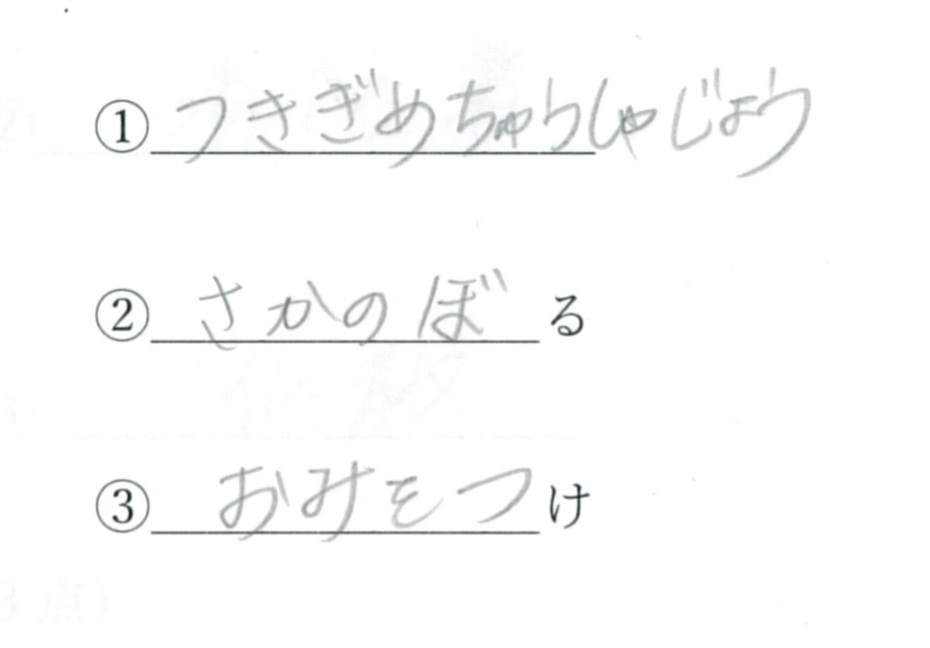 ① つきぎめちゅうしゃじょう
② さかのぼる
③ おみをつけ